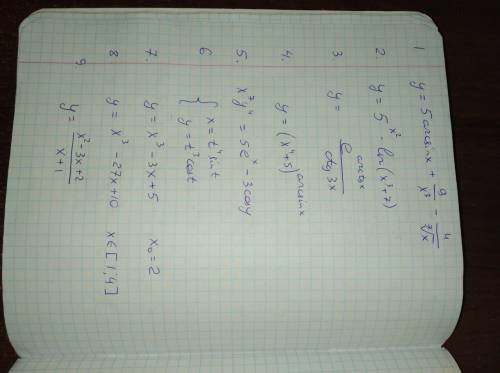 1 y = 5arcsinx + 9/x³ - 4/⁷√x
2. y = 5^(x²) · ln(x³+7)
3. y = e^(arctgx) / ctg3x
4. y = (x⁴+5)^(arcsinx)
5. x⁷y⁴ = 5eˣ - 3cosy
6 { x = t⁴sint
y = t³cost
7. y = x³ - 3x + 5 x₀ = 2
8 y = x³ - 27x + 10 x ∈ [1;4]
9 y = (x² - 3x + 2) / (x + 1)